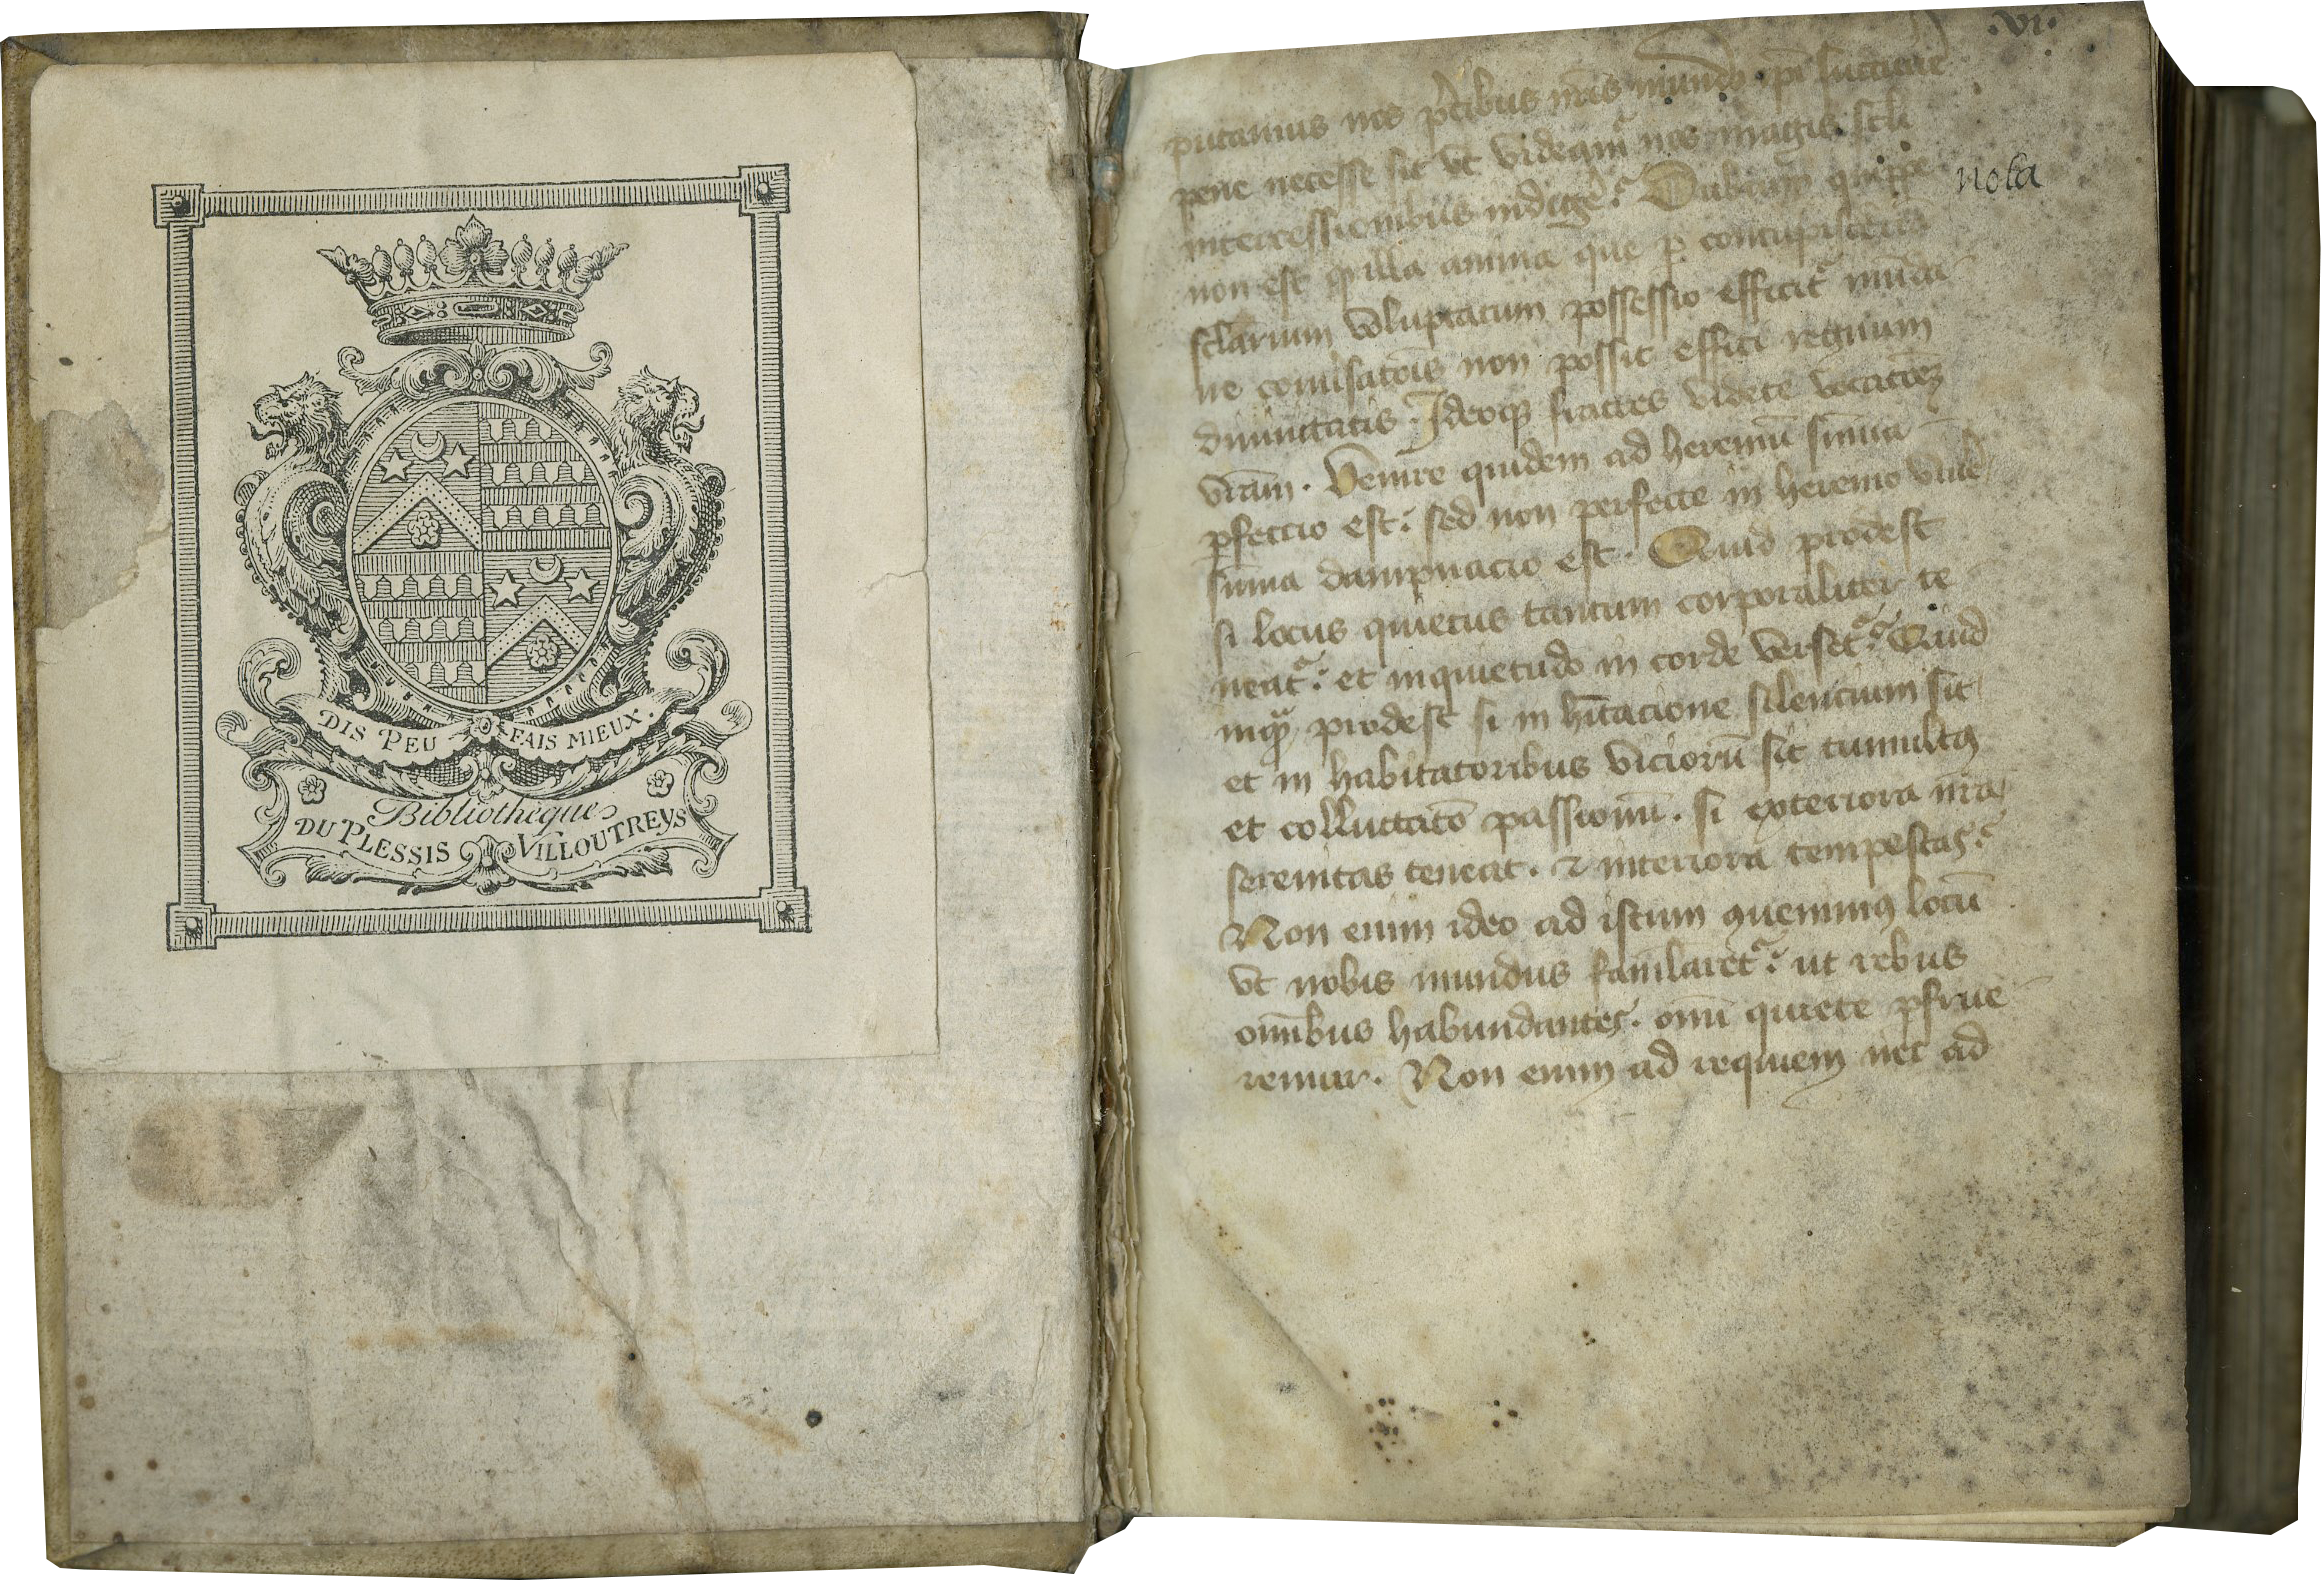 DIS PEU FAIS MIEUX.
Bibliothèque
DU PLESSIS VILLOUTREYS
.vi.
putamus nos p̄cibus nr̄is
pene necesse sit vt videam̄ nos magis scłi
intercessionibus indigē? Dubium quippe
nota
non est illa anima que ꝑ
scłarium voluptatum possessio efficit᷑ munda
ne non possit effici regnum
diuinitatis. Ideoqꝫ fratres videte vocacōeꝫ
vr̄am. Venire quidem ad heremū summa
ꝑfeccio est: sed non perfecte in heremo viuē
sūma dampnacio est. Quid prodest
si locus quietus tantum corporaliter te
neat᷑: et inquietudo in corde verset᷑? Quid
inqᷓꝫ prodest si in hītacione silencium sit
et in habitatoribus viciorū sit tumultꝰ
et colluctatō passionū. si exteriora nr̄a
serenitas teneat. ⁊ interiora tempestas?
Non enim ideo ad istum ꝯuenimꝰ locū
vt nobis mundus famlaret᷑: ut rebus
om̄ibus habundantes. omī quiete ꝑfrue
remur. Non enim ad requiem nec ad